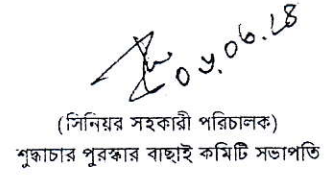 ০৬.০৬.২৪
(সিনিয়র সহকারী পরিচালক)
শুদ্ধাচার পুরস্কার বাছাই কমিটি সভাপতি